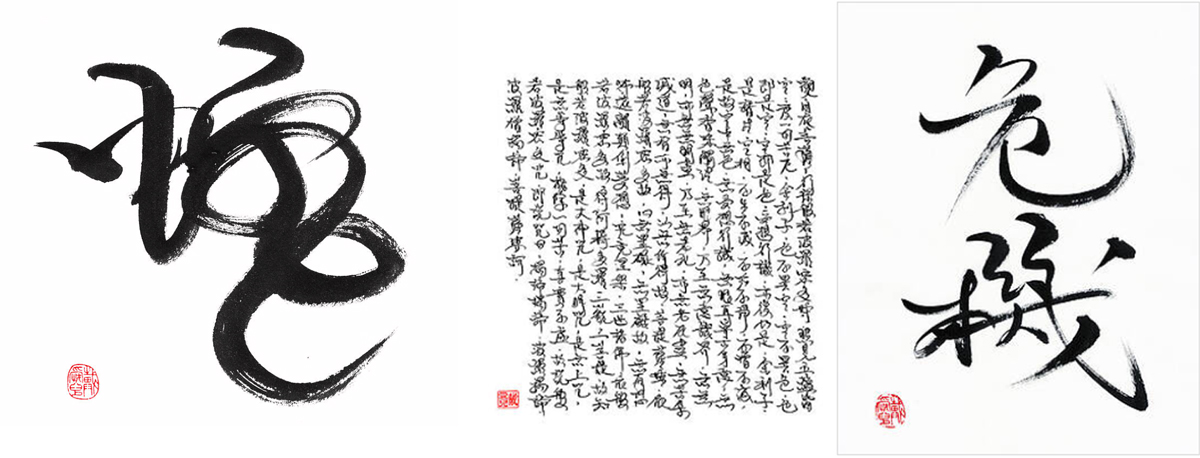 觀自在菩薩·行深般若波羅蜜多時·照見五蘊皆
空·度一切苦厄·舍利子·色不異空·空不異色·色
即是空·空即是色·受想行識·亦復如是·舍利子·
是諸法空相·不生不滅·不垢不淨·不增不減·
是故空中無色·無受想行識·無眼耳鼻舌身意·無
色聲香味觸法·無眼界·乃至無意識界·無無
明·亦無無明盡·乃至無老死·亦無老死盡·無苦集
滅道·無智亦無得·以無所得故·菩提薩埵·依
般若波羅蜜多故·心無罣礙·無罣礙故·無有恐
怖·遠離顛倒夢想·究竟涅槃·三世諸佛·依般
若波羅蜜多故·得阿耨多羅三藐三菩提·故知
般若波羅蜜多·是大神咒·是大明咒·是無上咒·
是無等等咒·能除一切苦·真實不虛·故說般
若波羅蜜多咒·即說咒曰·揭諦揭諦·波羅揭諦·
波羅僧揭諦·菩提薩婆訶·
危機